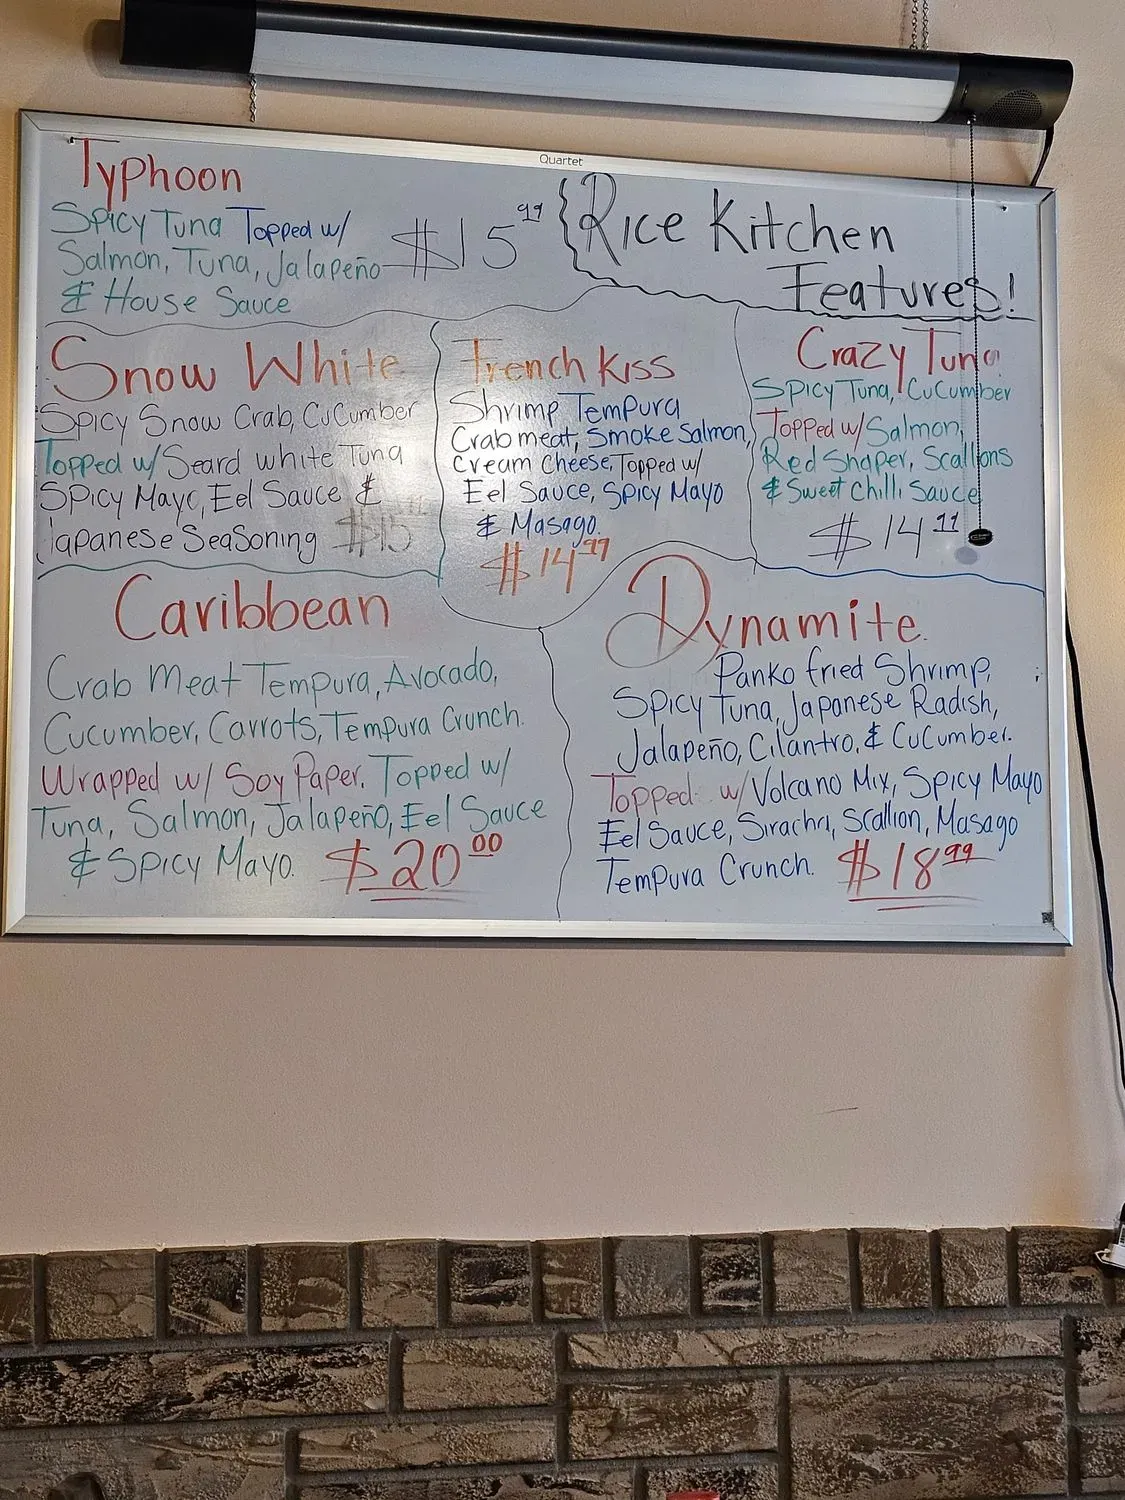 Quartet
Typhoon
Spicy Tuna Topped w/
Salmon, Tuna, Jalapeño
& House Sauce
$15.99
Rice Kitchen
Features!
Snow White
Spicy Snow Crab, Cucumber
Topped w/ Seard white Tuna
Spicy Mayo, Eel Sauce &
Japanese Seasoning $15
French Kiss
Shrimp Tempura
Crab meat, Smoke Salmon,
Cream Cheese, Topped w/
Eel Sauce, Spicy Mayo
& Masago.
$14.99
Crazy Tuna
Spicy Tuna, Cucumber
Topped w/ Salmon,
Red Snaper, Scallions
& Sweet Chilli Sauce
$14.99
Caribbean
Crab Meat Tempura, Avocado,
Cucumber, Carrots, Tempura Crunch.
Wrapped w/ Soy Paper. Topped w/
Tuna, Salmon, Jalapeño, Eel Sauce
& Spicy Mayo. $20.00
Dynamite.
Panko fried Shrimp,
Spicy Tuna, Japanese Radish,
Jalapeño, Cilantro, & Cucumber.
Topped w/ Volcano Mix, Spicy Mayo
Eel Sauce, Siracha, Scallion, Masago
Tempura Crunch. $18.99